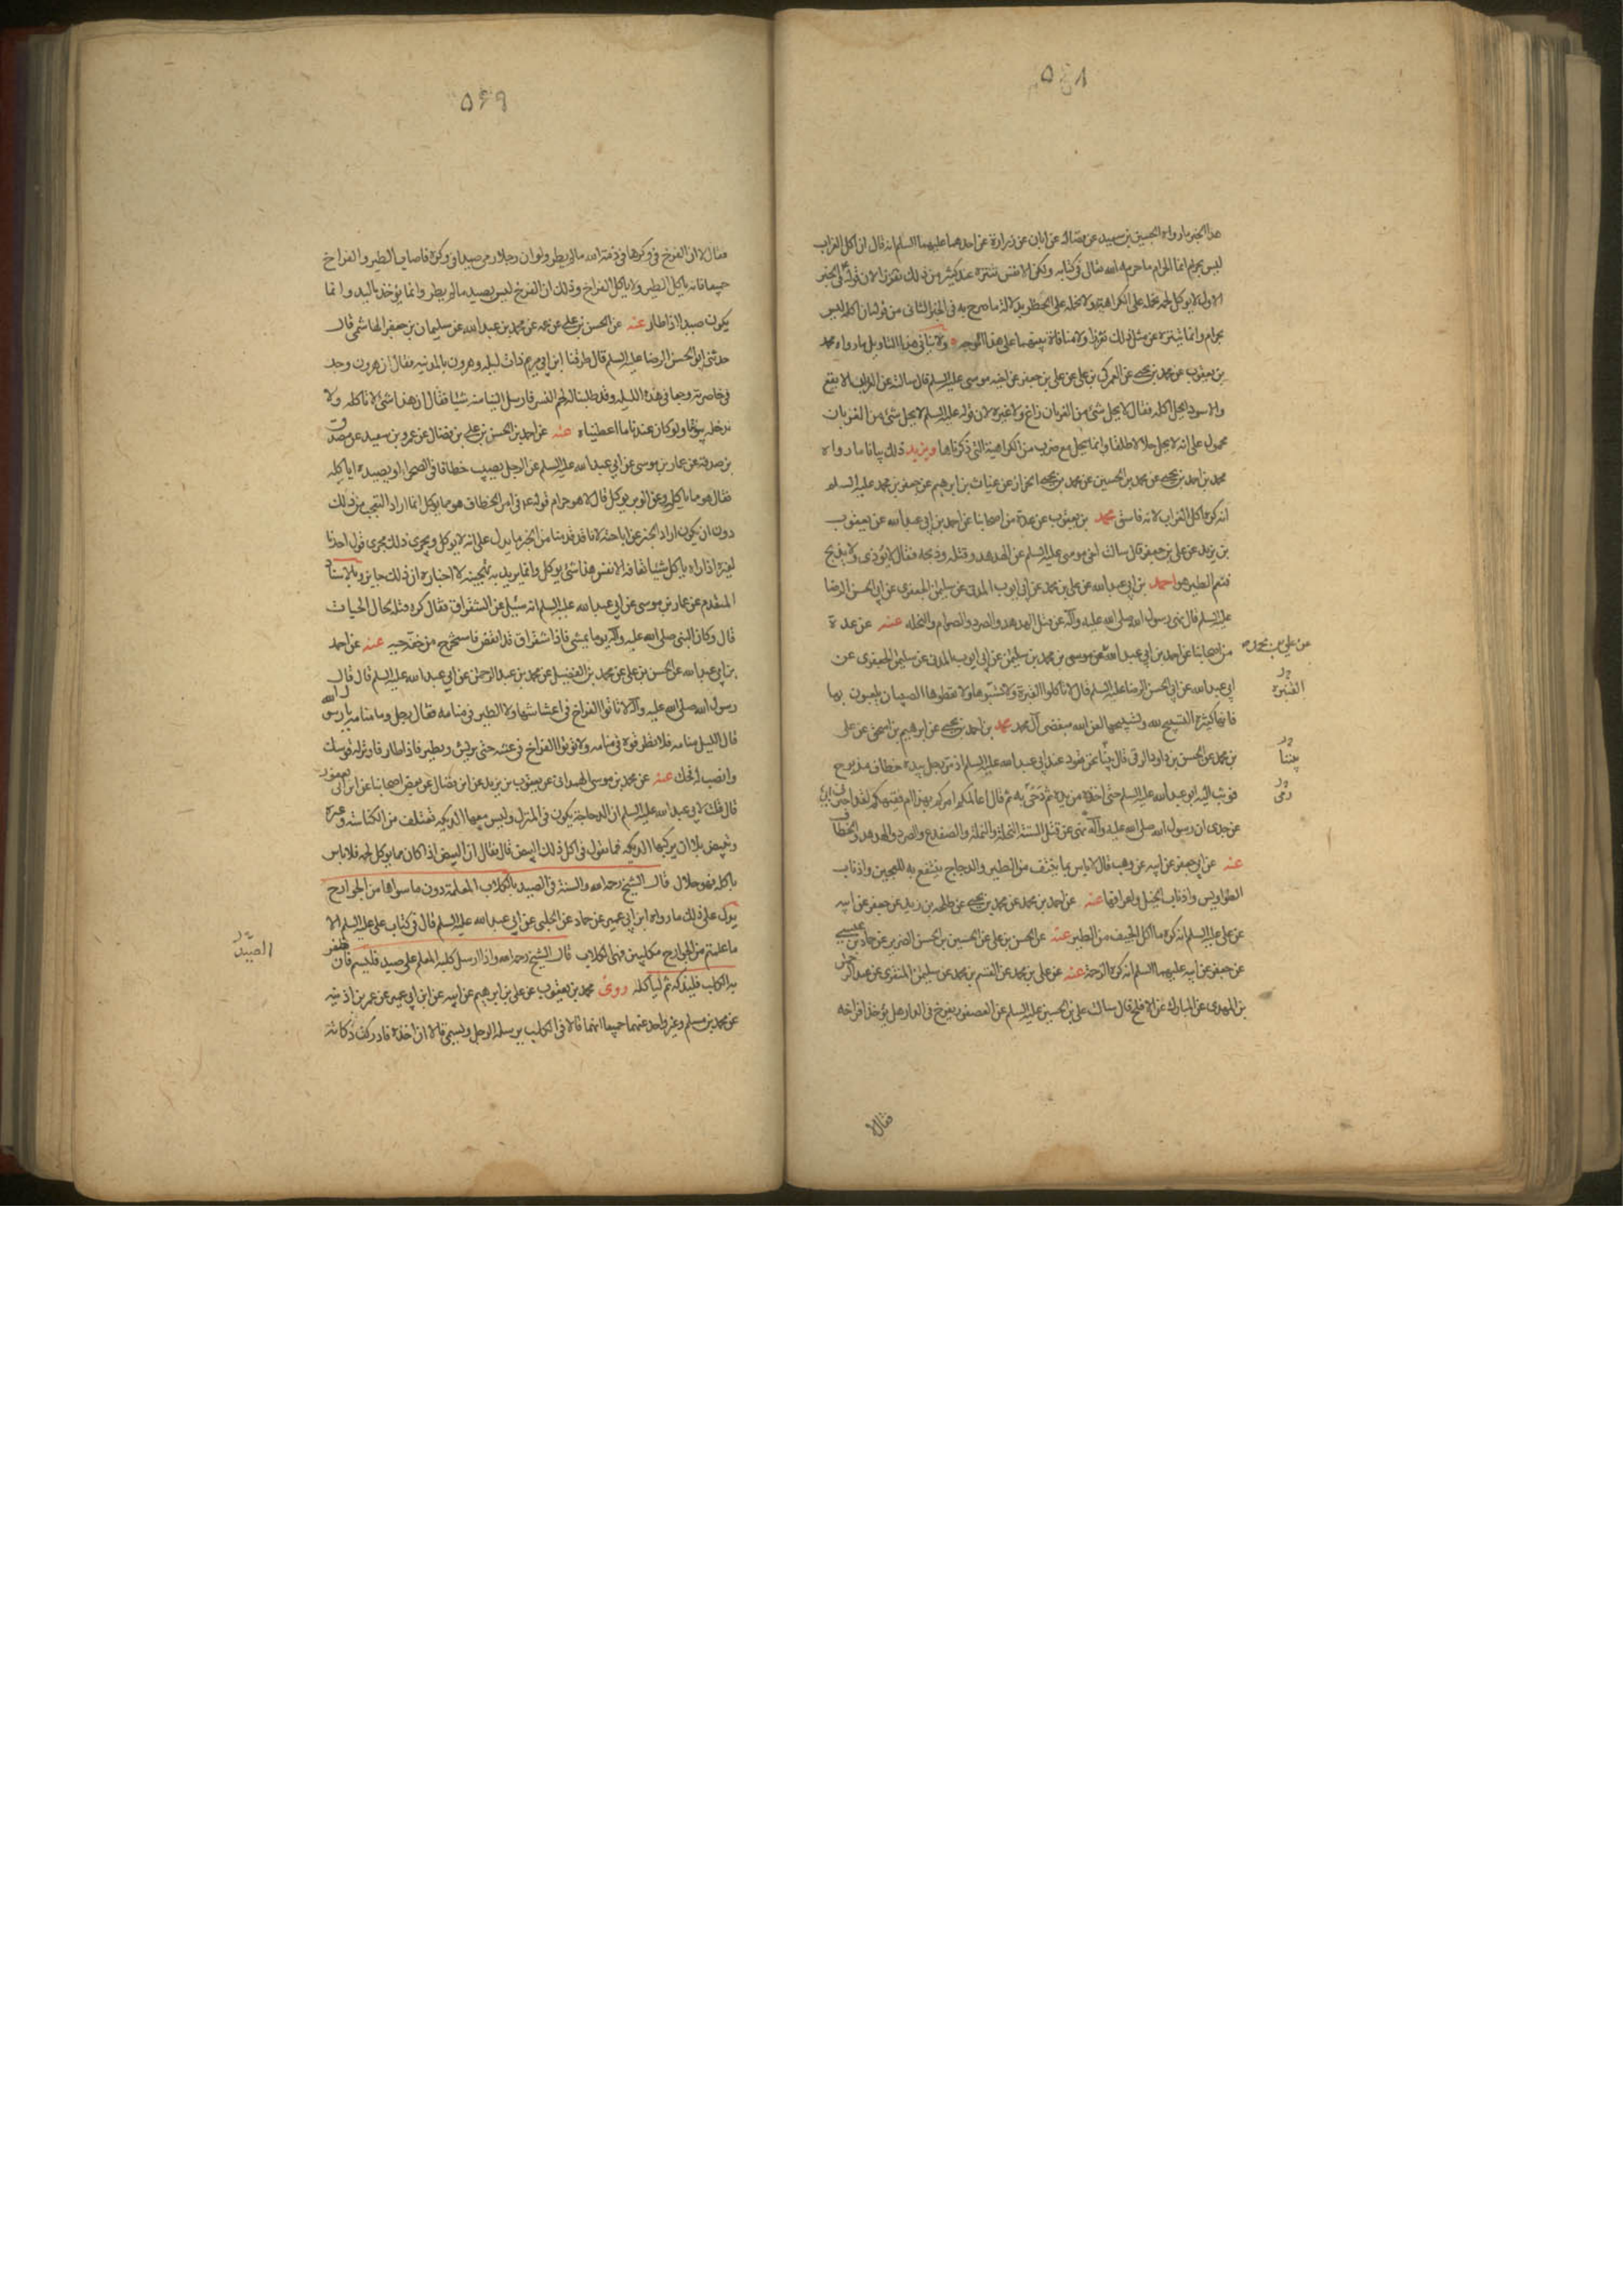 ٥٤٨
هذا الخبر ما رواه الحسين بن سعيد عن فضالة عن ابان عن زرارة عن احدهما عليهما السلم انه قال ان اكل الغراب
ليس بحرام انما الحرام ما حرمه الله تعالى في كتابه ولكن الانفس تتنزه عن كثير من ذلك تقززا لان قوله في الخبر
الاول لا يؤكل لحمه نحمله على الكراهية ولا نحمله على الحظر بدلالة ما صرح به في الخبر الثاني من قوله ان اكله ليس
بحرام وانما يتنزه عن مثل ذلك تقززا ولا منافاة بينهما على هذا الوجه ولا ينافي هذا التاويل ما رواه محمد
بن يعقوب عن محمد بن يحيى عن العمركي بن علي عن علي بن جعفر عن اخيه موسى عليه السلم قال سالته عن الغراب الابقع
والاسود ايحل اكله فقال لا يحل شئ من الغربان زاغ ولا غيره لان قوله عليه السلم لا يحل شئ من الغربان
محمول على انه لا يحل حلالا طلقا وانما يحل مع ضرب من الكراهية التي ذكرناها ويزيد ذلك بيانا ما رواه
محمد بن احمد بن يحيى عن محمد بن الحسين عن محمد بن يحيى الخزاز عن غياث بن ابرهيم عن جعفر بن محمد عليه السلم
انه كره اكل الغراب لانه فاسق محمد بن يعقوب عن عدة من اصحابنا عن احمد بن ابي عبد الله عن يعقوب
بن يزيد عن علي بن جعفر قال سالت اخي موسى عليه السلم عن الهدهد وقتله وذبحه فقال لا يؤذى ولا يذبح
فنعم الطير هو احمد بن ابي عبد الله عن علي بن محمد عن ابي ايوب المدني عن سليمن الجعفري عن ابي الحسن الرضا
عليه السلم قال نهى رسول الله صلى الله عليه وآله عن قتل الهدهد والصرد والصوام والنحلة عنه عن عدة
من اصحابنا عن احمد بن ابي عبد الله عن موسى بن محمد بن سليمن عن ابي ايوب المدني عن سليمن الجعفري عن
ابي عبد الله عن ابي الحسن الرضا عليه السلم قال لا تاكلوا القبرة ولا تسبوها ولا تعطوها الصبيان يلعبون بها
فانها كثيرة التسبيح لله وتسبيحها لعن الله مبغضي آل محمد محمد بن احمد بن يحيى عن ابرهيم بن اسحق عن علي
بن محمد عن الحسن بن داود الرقي قال بينا نحن قعود عند ابي عبد الله عليه السلم اذ مر رجل بيده خطاف مذبوح
فوثب اليه ابو عبد الله عليه السلم حتى اخذه من يده ثم دحى به ثم قال اعالمكم امركم بهذا ام فقيهكم لقد اخبرني ابي
عن جدي ان رسول الله صلى الله عليه وآله نهى عن قتل الستة النحلة والنملة والضفدع والصرد والهدهد والخطاف
عنه عن ابي جعفر عن ابيه عن وهب قال لا باس بما ينتف من الطير والدجاج ينتفع به للعجين واذناب
الطواويس واذناب الخيل واعرافها عنه عن احمد بن محمد عن محمد بن يحيى عن طلحة بن زيد عن جعفر عن ابيه
عن علي عليه السلم انه كره ما اكل الجيف من الطير عنه عن الحسن بن علي عن الحسين بن الحسن الضرير عن حماد بن عيسى
عن جعفر عن ابيه عليهما السلم انه كره الرخمة عنه عن علي بن محمد عن القسم بن محمد عن سليمن المنقري عن عبد الرحمن
بن المهدي عن المبارك عن الافلح قال سالت علي بن الحسين عليه السلم عن العصفور يفرخ في الدار هل يؤخذ افراخه
فقال لا
عن علي بن محمد
القنبرة
بيننا
رمى
٥٤٩
فقال لا ان الفرخ في وكرها في ذمة الله ما لم يطر ولو ان رجلا رمى صيدا في وكره فاصاب الطير والفراخ
جميعا فانه ياكل الطير ولا ياكل الفراخ وذلك ان الفرخ ليس بصيد ما لم يطر وانما يؤخذ باليد وانما
يكون صيدا اذا طار عنه عن الحسن بن علي عن عمه عن محمد بن عبد الله عن سليمان بن جعفر الهاشمي قال
حدثني ابو الحسن الرضا عليه السلم قال طرقنا ابن ابي مريم ذات ليلة وهرون بالمدينة فقال ان هرون وجد
في خاصرته وجعا في هذه الليلة وقد طلبنا له لحم النسر فارسل الينا منه شيئا فقال ان هذا شئ لا ناكله ولا
ندخله بيوتنا ولو كان عندنا ما اعطيناه عنه عن احمد بن الحسن بن علي بن فضال عن عمرو بن سعيد عن مصدق
بن صدقة عن عمار بن موسى عن ابي عبد الله عليه السلم عن الرجل يصيب خطافا في الصحراء او يصيده اياكله
فقال هو مما يؤكل وعن الوبر يؤكل قال لا هو حرام قوله ع في امر الخطاف هو مما يؤكل انما اراد التعجب من ذلك
دون ان يكون اراد الخبر عن اباحته لانا قد قدمنا من الخبر ما يدل على انه لا يؤكل ويجري ذلك مجرى قول احدنا
لغيره اذا راه ياكل شيئا تعافه الانفس هذا شئ يؤكل وانما يريد به تهجينه لا اخباره ان ذلك جايز وبالاسناد
المتقدم عن عمار بن موسى عن ابي عبد الله عليه السلم انه سئل عن الشقراق فقال كره قتله لحال الحيات
قال وكان النبي صلى الله عليه وآله يوما يمشي فاذا شقراق قد انقض فاستخرج من خفه حية عنه عن احمد
بن ابي عبد الله عن الحسن بن علي عن محمد بن الفضيل عن محمد بن عبد الرحمن عن ابي عبد الله عليه السلم قال قال
رسول الله صلى الله عليه وآله لا تاتوا الفراخ في اعشاشها ولا الطير في منامه فقال رجل وما منامه يا رسول الله
قال الليل منامه فلا تطرقوه في منامه ولا تاتوا الفراخ في عشه حتى يريش ويطير فاذا طار فاوتر له قوسك
وانصب له فخك عنه عن محمد بن موسى الهمداني عن يعقوب بن يزيد عن ابن فضال عن بعض اصحابنا عن ابن ابي يعفور
قال قلت لابي عبد الله عليه السلم ان الدجاجة تكون في المنزل وليس معها الديكة تعتلف من الكناسة وغيره
وتبيض بلا ان يركبها الديكة فما تقول في اكل ذلك البيض قال فقال ان البيض اذا كان مما يؤكل لحمه فلا باس
باكله فهو حلال قال الشيخ رحمه الله والسنة في الصيد بالكلاب المعلمة دون ما سواها من الجوارح
يدل على ذلك ما رواه ابن ابي عمير عن حماد عن الحلبي عن ابي عبد الله عليه السلم قال في كتاب علي عليه السلم الا
ما علمتم من الجوارح مكلبين فهي الكلاب قال الشيخ رحمه الله واذا ارسل كلبه المعلم على صيد فليسم فان ظفر
به الكلب فليذكه ثم لياكله روى محمد بن يعقوب عن علي بن ابرهيم عن ابيه عن ابن ابي عمير عن عمر بن اذينة
عن محمد بن مسلم وغير واحد عنهما جميعا انهما قالا في الكلب يرسله الرجل ويسمي قالا ان اخذه فادركت ذكاته
الصيد